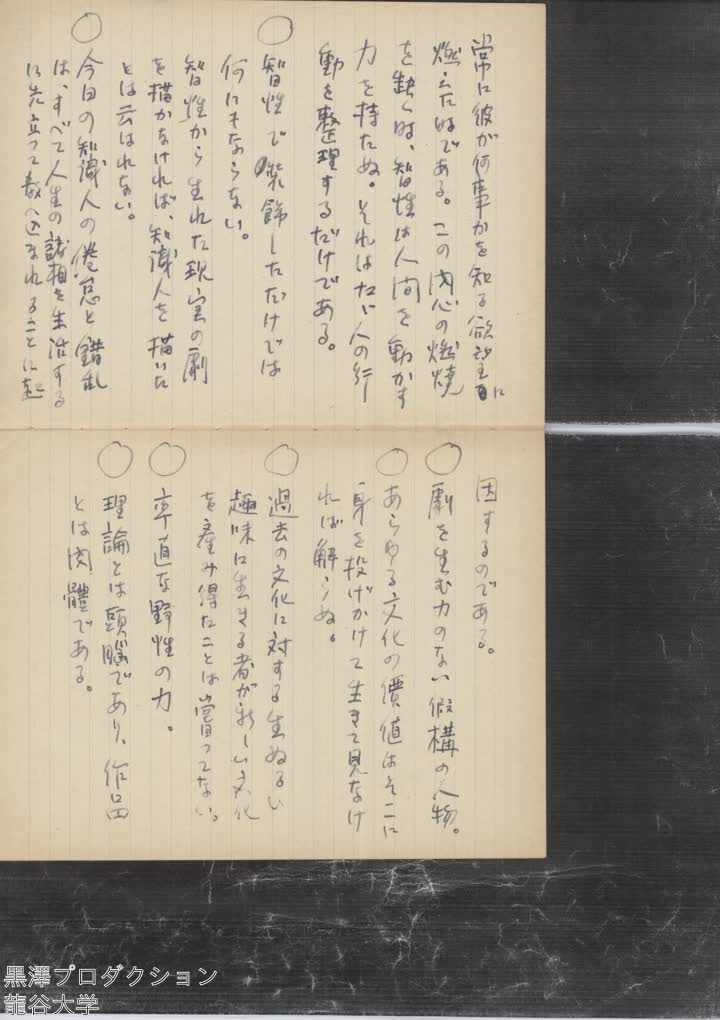 常に彼が何事かを知る欲望に
燃えた時である。この内心の燃焼
を缺く時、智性は人間を動かす
力を持たぬ。それはたゞ人の行
動を整理するだけである。
○
智性で粧飾しただけでは
何にもならない。
智性から生れた現実の劇
を描かなければ、知識人を描いた
とは云はれない。
○
今日の知識人の倦怠と錯乱
は、すべて人生の諸相を生活する
に先立つて教へ込まれることに起
因するのである。
○
劇を生む力のない假構の人物。
○
あらゆる文化の價値はそこに
身を投げかけて生きて見なけ
れば解らぬ。
○
過去の文化に対する生ぬるい
趣味に生きる者が新しい文化
を産み得たことは嘗つてない。
○
卒直な野性の力。
○
理論とは頭腦であり、作品
とは肉體である。
黒澤プロダクション
龍谷大学